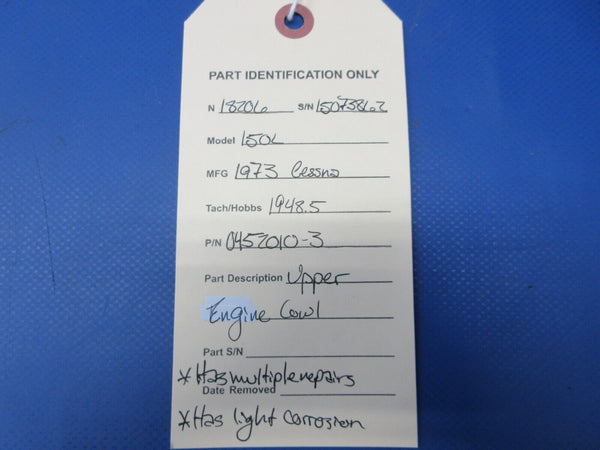 PART IDENTIFICATION ONLY
N 18206 S/N 15073862
Model 150L
MFG 1973 Cessna
Tach/Hobbs 1948.5
P/N 0452010-3
Part Description Upper
Engine Cowl
Part S/N
*Has multiple repairs
Date Removed
*Has light corrosion